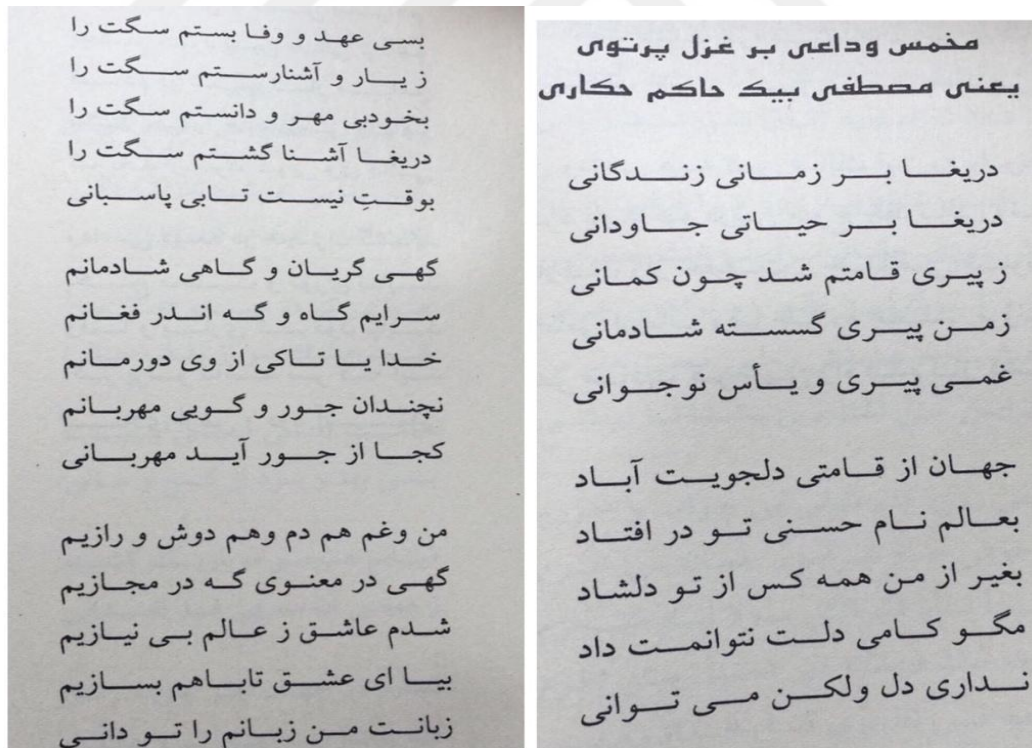 مخمس وداعی بر غزل پرتوی
یعنی مصطفی بیک حاکم حکاری
دریغا بر زمانی زندگانی
دریغا بر حیاتی جاودانی
ز پیری قامتم شد چون کمانی
زمن پیری گسسته شادمانی
غمی پیری و یأس نوجوانی
جهان از قامتی دلجویت آباد
بعالم نام حسنی تو در افتاد
بغیر از من همه کس از تو دلشاد
مگو کامی دلت نتوانمت داد
نداری دل ولکن می توانی
بسی عهد و وفا بستم سگت را
ز یار و آشنارستم سگت را
بخودبی مهر و دانستم سگت را
دریغا آشنا گشتم سگت را
بوقتِ نیست تابی پاسبانی
گهی گریان و گاهی شادمانم
سرایم گاه و گه اندر فغانم
خدا یا تاکی از وی دورمانم
نچندان جور و گویی مهربانم
کجا از جور آید مهربانی
من وغم هم دم وهم دوش و رازیم
گهی در معنوی گه در مجازیم
شدم عاشق ز عالم بی نیازیم
بیا ای عشق تاباهم بسازیم
زبانت من زبانم را تو دانی